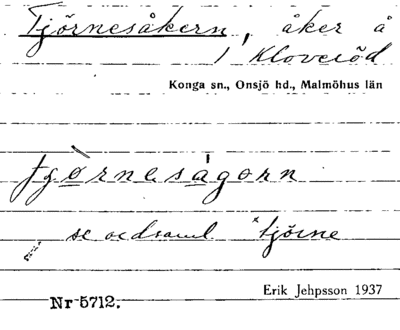 Tjörnesåkern, åker å
Klovesöd
Konga sn., Onsjö hd., Malmöhus län
tjørnesågorn
se ordsaml. tjörne
Erik Jehpsson 1937
Nr 5712.